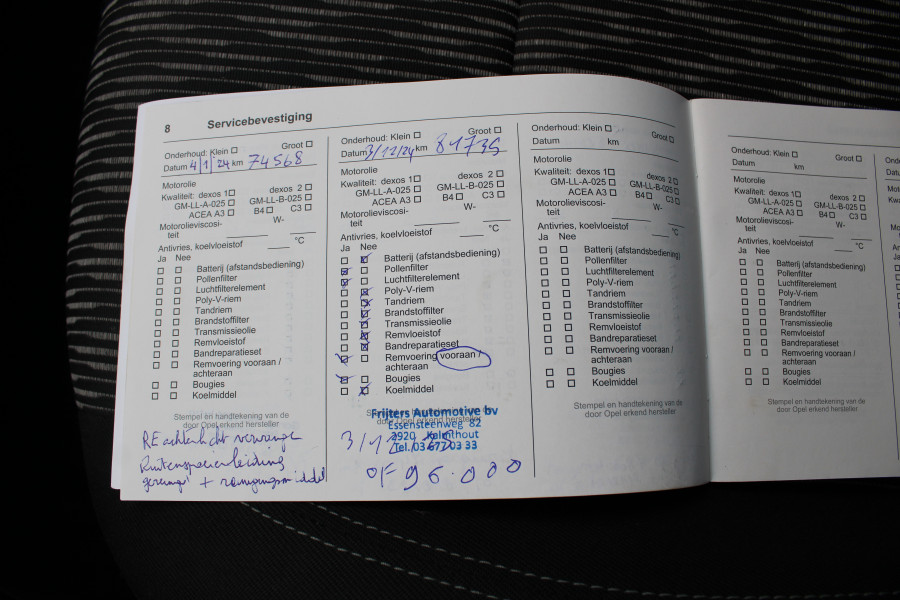 8 Servicebevestiging
Onderhoud: Klein □ Groot □
Datum 4/1/24 km 74568
Motorolie
Kwaliteit: dexos 1 □ dexos 2 □
GM-LL-A-025 □ GM-LL-B-025 □
ACEA A3 □ B4 □ C3 □
Motorolieviscosi- W-
teit
Antivries, koelvloeistof °C
Ja Nee
Batterij (afstandsbediening)
Pollenfilter
Luchtfilterelement
Poly-V-riem
Tandriem
Brandstoffilter
Transmissieolie
Remvloeistof
Bandreparatieset
Remvoering vooraan /
achteraan
Bougies
Koelmiddel
Stempel en handtekening van de
door Opel erkend hersteller
RE achterlicht
Ruitensproeierleiding
+
Onderhoud: Klein □ Groot □
Datum 3/12/24 km 81735
Motorolie
Kwaliteit: dexos 1 □ dexos 2 □
GM-LL-A-025 □ GM-LL-B-025 □
ACEA A3 □ B4 □ C3 □
Motorolieviscosi- W-
teit
Antivries, koelvloeistof °C
Ja Nee
Batterij (afstandsbediening)
Pollenfilter
Luchtfilterelement
Poly-V-riem
Tandriem
Brandstoffilter
Transmissieolie
Remvloeistof
Bandreparatieset
Remvoering vooraan /
achteraan
Bougies
Koelmiddel
door Opel erkend hersteller
Frijters Automotive bv
Essensteenweg 82
2920 Kalmthout
Tel. 03 677 03 33
3/12
OF 96.000
Onderhoud: Klein □ Groot □
Datum km
Motorolie
Kwaliteit: dexos 1 □ dexos 2 □
GM-LL-A-025 □ GM-LL-B-025 □
ACEA A3 □ B4 □ C3 □
Motorolieviscosi- W-
teit
Antivries, koelvloeistof °C
Ja Nee
Batterij (afstandsbediening)
Pollenfilter
Luchtfilterelement
Poly-V-riem
Tandriem
Brandstoffilter
Transmissieolie
Remvloeistof
Bandreparatieset
Remvoering vooraan /
achteraan
Bougies
Koelmiddel
Stempel en handtekening van de
door Opel erkend hersteller
Onderhoud: Klein □ Groot □
Datum km
Motorolie
Kwaliteit: dexos 1 □ dexos 2 □
GM-LL-A-025 □ GM-LL-B-025 □
ACEA A3 □ B4 □ C3 □
Motorolieviscosi- W-
teit
Antivries, koelvloeistof °C
Ja Nee
Batterij (afstandsbediening)
Pollenfilter
Luchtfilterelement
Poly-V-riem
Tandriem
Brandstoffilter
Transmissieolie
Remvloeistof
Bandreparatieset
Remvoering vooraan /
achteraan
Bougies
Koelmiddel
Stempel en handtekening van de
door Opel erkend hersteller